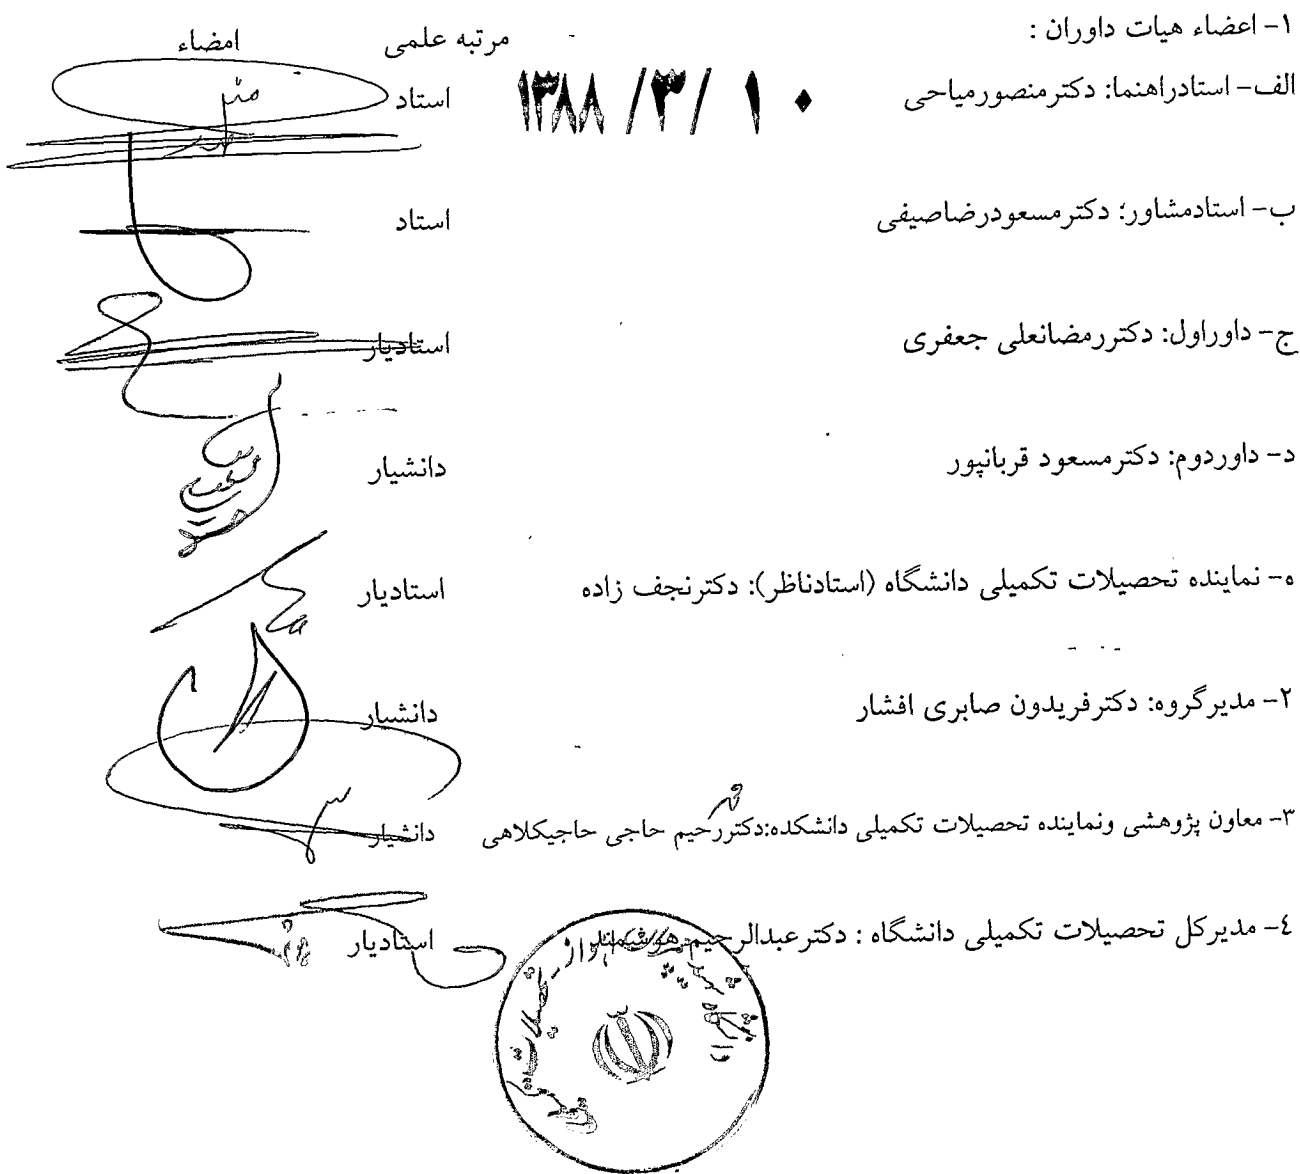 ۱- اعضاء هیات داوران :
مرتبه علمی
امضاء
الف- استادراهنما: دکترمنصورمیاحی
استاد
۱۳۸۸ /۳/ ۱۰
ب- استادمشاور؛ دکترمسعودرضاصیفی
استاد
ج- داوراول: دکتررمضانعلی جعفری
استادیار
د- داوردوم: دکترمسعود قربانپور
دانشیار
ه- نماینده تحصیلات تکمیلی دانشگاه (استادناظر): دکترنجف زاده
استادیار
۲- مدیرگروه: دکترفریدون صابری افشار
دانشیار
۳- معاون پژوهشی ونماینده تحصیلات تکمیلی دانشکده:دکتررحیم حاجی حاجیکلاهی
دانشیار
٤- مدیرکل تحصیلات تکمیلی دانشگاه : دکترعبدالرحیم هوشمند
استادیار